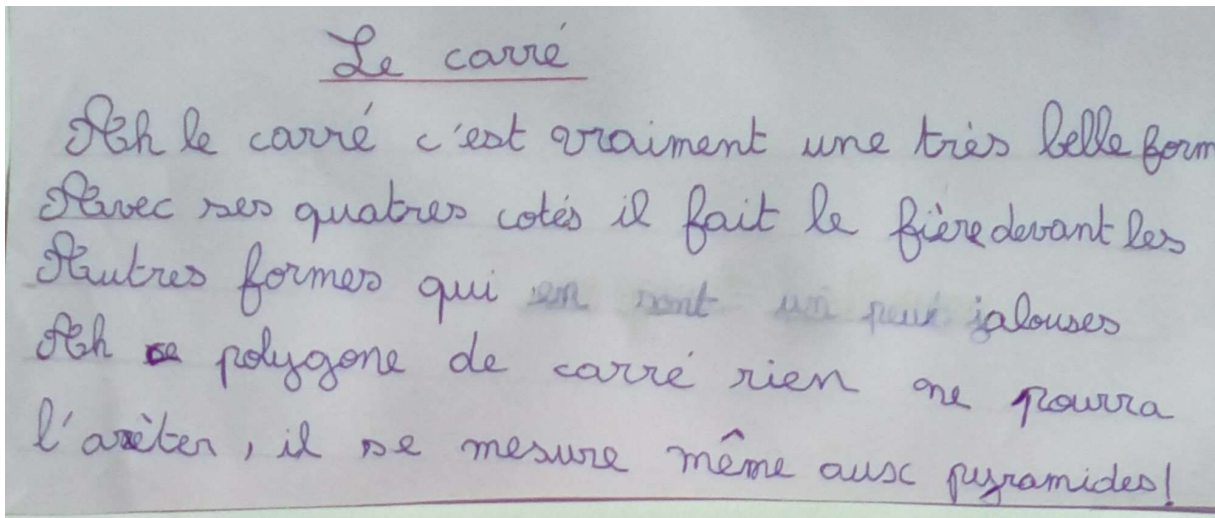 Le carré
Ah le carré c'est vraiment une très belle form
Avec ses quatres cotés il fait le fière devant les
Autres formes qui en sont un peu jalouses
Ah ce polygone de carré rien ne pourra
l'arèter, il se mesure même aux pyramides!